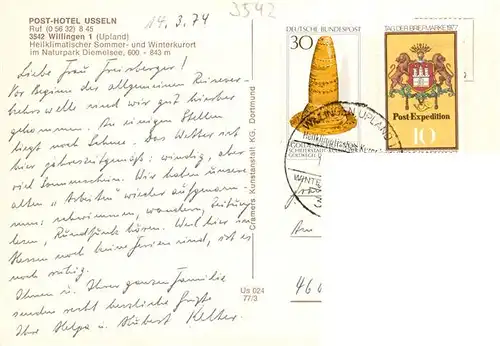 POST-HOTEL USSELN
Ruf (0 56 32) 8 45
3542 Willingen 1 (Upland)
Heilklimatischer Sommer- und Winterkurort
im Naturpark Diemelsee, 600 - 843 m
14.3.79
3542
Liebe Frau Freisberger!
Vor Beginn des allgemeinen Reisever-
kehrs sind wir gut hierher
gekommen. An einigen Stellen
liegt noch Schnee. Das Wetter ist
hier jahreszeitgemäß: windig, aber
viel Sonnenschein. Wir haben unsere
alten "Arbeiten" wieder aufgenom-
men: schwimmen, wandern, Zeitung
lesen, Rundfunk hören. Weil hier im
Hessen noch keine Ferien sind, ist es
noch ruhig.
Ihnen u. Ihrer ganzen Familie
senden recht herzliche Grüße
Ihre Helga u. Hubert Kelter.
Cramers Kunstanstalt KG, Dortmund
Us 024
77/3
DEUTSCHE BUNDESPOST
30
TAG DER BRIEFMARKE 1977
Post-Expedition
10
WILLINGEN, UPLAND
Heilklimatischer Kurort
WINTER
An
460